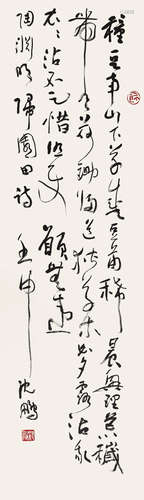 種豆南山下草盛豆苗稀晨興理荒穢
帶月荷鋤歸道狹草木長夕露沾我
衣衣沾不足惜但使願無違
陶淵明歸園田詩 壬申 沈鵬